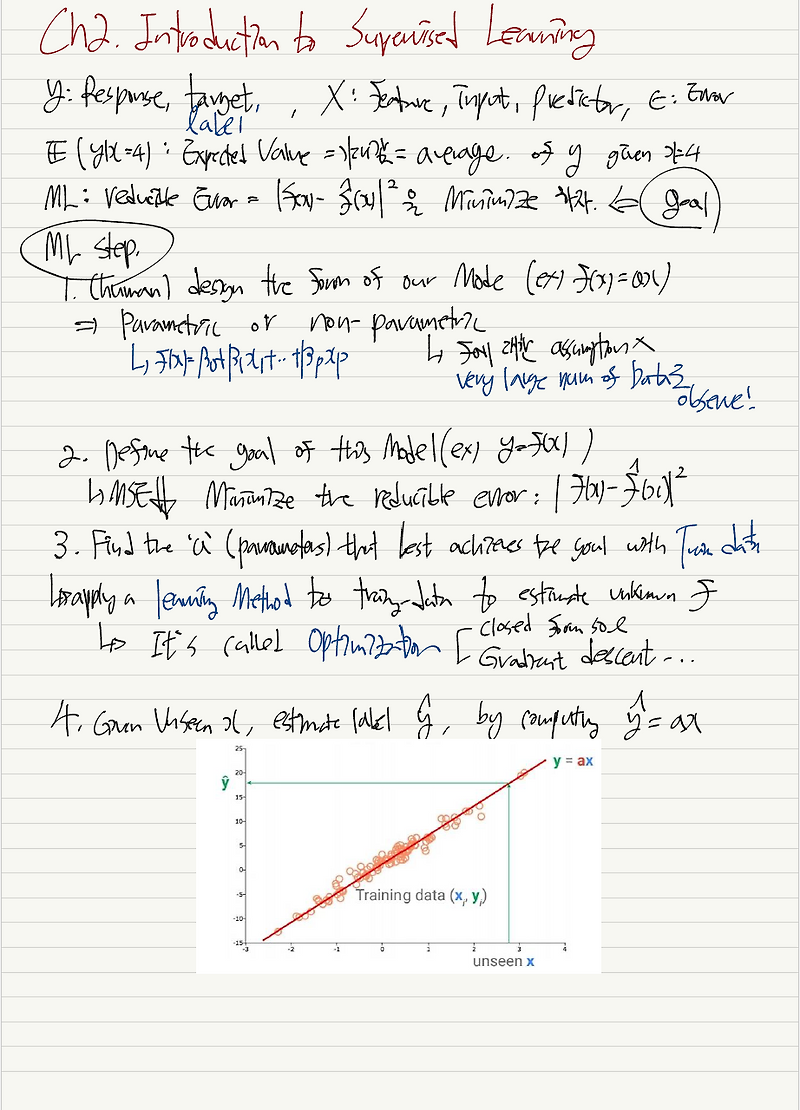 Ch2. Introduction to Supervised Learning
y: Response, target, , X: feature, input, predictor, ε: Error
label
E(y|x=4): Expected Value = 기대값 = average. of y given x=4
ML: reducible Error = |f(x) - f̂(x)|² 을 Minimize 하자. ⇐ goal
ML step.
1. (human) design the form of our Mode (ex) f(x)=ax)
⇒ Parametric or non-parametric
↳ f(x)=β₀+β₁x₁+..+βₚxₚ ↳ f에 대한 assumption X
very large num of Data로
observe!
2. Define the goal of this Model (ex) y=f(x) )
↳ MSE⇓ Minimize the reducible error: |f(x) - f̂(x)|²
3. Find the 'a' (parameters) that best achieves the goal with Train data
↳ apply a learning Method to traing-data to estimate unknown f
↳ It's called Optimization [ closed form sol
Gradient descent ...
4. Given Unseen x, estimate label ŷ, by computing ŷ = ax
25
y = ax
20
ŷ
15
10
5
0
-5
Training data (xᵢ, yᵢ)
-10
-15
-3 -2 -1 0 1 2 3 4
unseen x